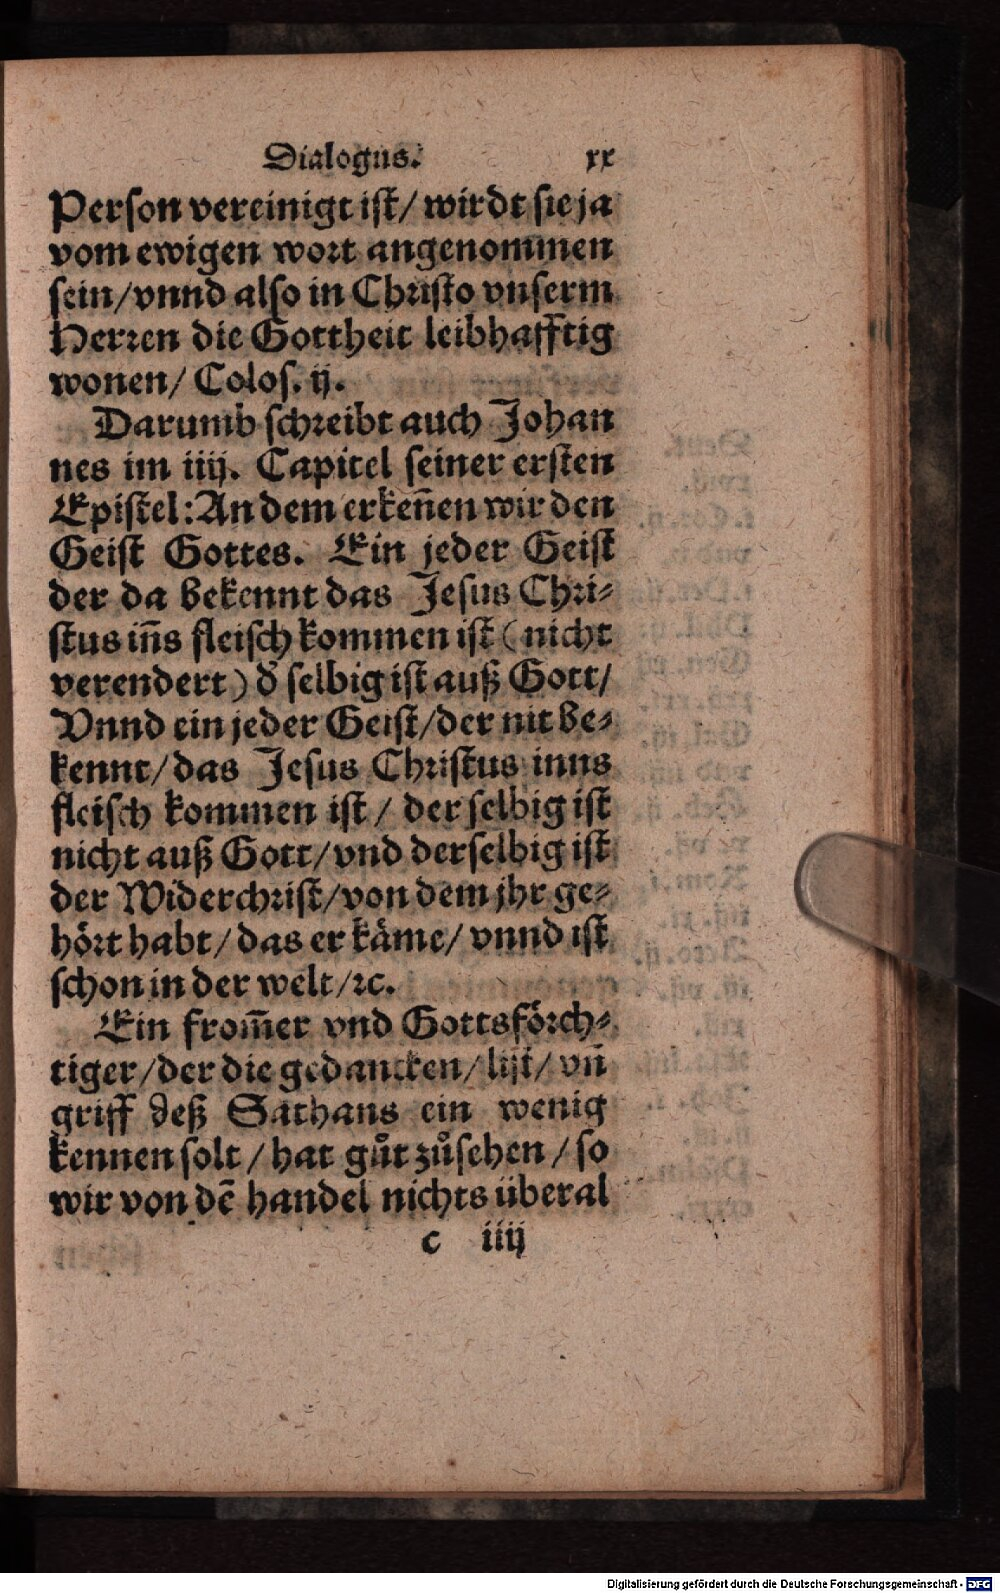 Dialogus. xx
Person vereinigt ist/ wirdt sie ja
vom ewigen wort angenommen
sein/ vnnd also in Christo vnserm
Herren die Gottheit leibhafftig
wonen/ Colos. ij.
Darumb schreibt auch Johan
nes im iiij. Capitel seiner ersten
Epistel: An dem erkeñen wir den
Geist Gottes. Ein jeder Geist
der da bekennt das Jesus Chri⸗
stus iñs fleisch kommen ist ( nicht
verendert ) d̕ selbig ist auß Gott/
Vnnd ein jeder Geist/ der nit be⸗
kennt/ das Jesus Christus inns
fleisch kommen ist / der selbig ist
nicht auß Gott/ vnd derselbig ist
der Widerchrist/ von dem jhr ge⸗
hört habt/ das er käme/ vnnd ist
schon in der welt/ ꝛc.
Ein from̃er vnd Gottsförch⸗
tiger/ der die gedancken/ list/ vñ
griff deß Sathans ein wenig
kennen solt / hat gůt zůsehen / so
wir von dē handel nichts überal
c iiij
Digitalisierung gefördert durch die Deutsche Forschungsgemeinschaft - DFG